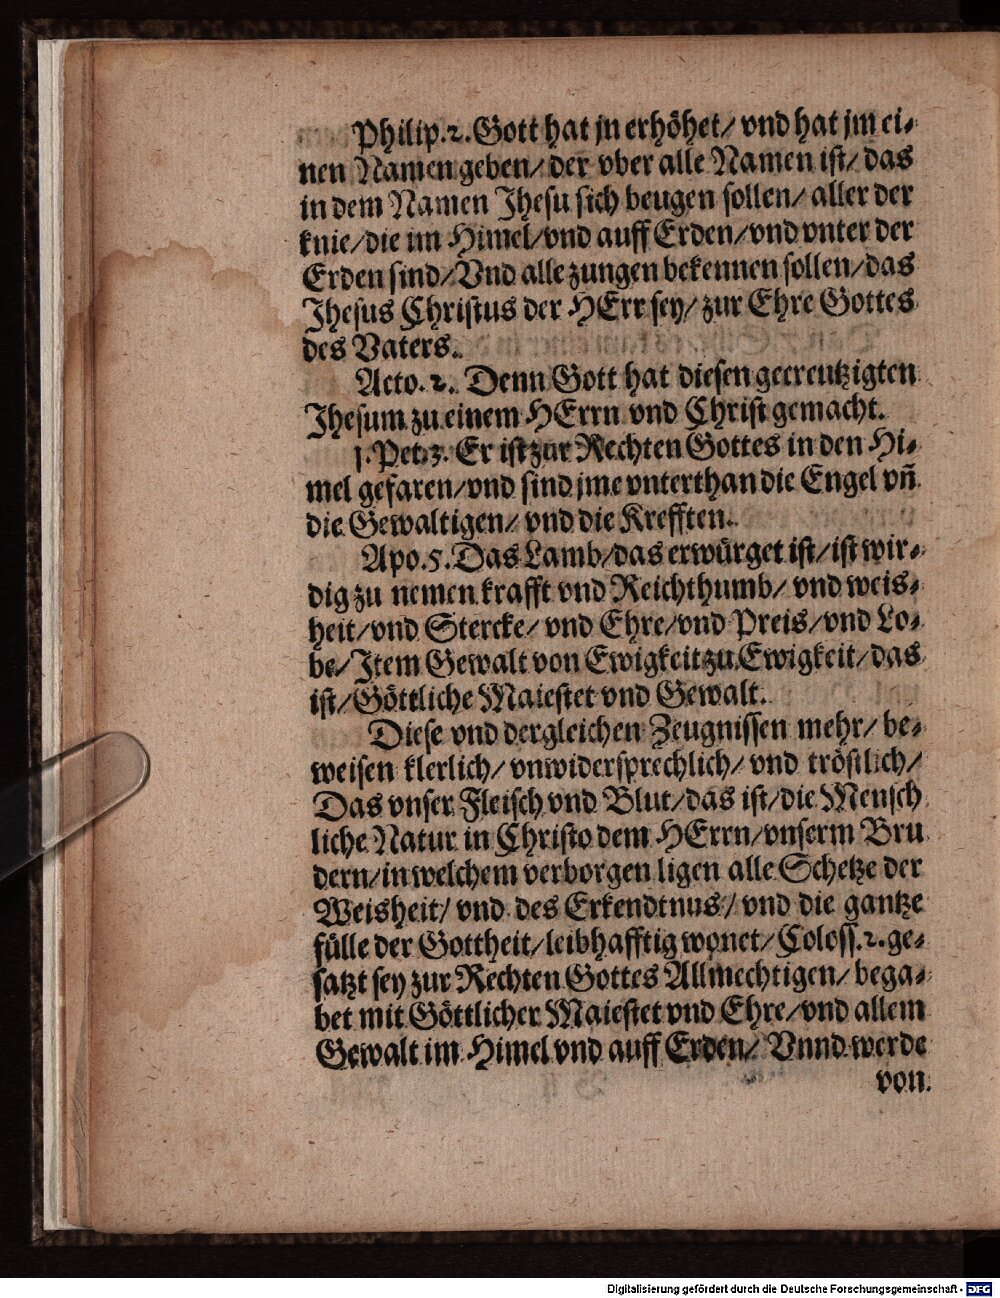 Philip. 2. Gott hat jn erhöhet/ vnd hat jm ei-
nen Namen geben/ der vber alle Namen ist/ das
in dem Namen Jhesu sich beugen sollen/ aller der
knie/ die im Himel/ vnd auff Erden/ vnd vnter der
Erden sind/ Vnd alle zungen bekennen sollen/ das
Jhesus Christus der HErr sey/ zur Ehre Gottes
des Vaters.
Acto. 2. Denn Gott hat diesen gecreutzigten
Jhesum zu einem HErrn vnd Christ gemacht.
1. Pet. 3. Er ist zur Rechten Gottes in den Hi-
mel gefaren/ vnd sind jme vnterthan die Engel vñ
die Gewaltigen/ vnd die Krefften.
Apo. 5. Das Lamb/ das erwürget ist/ ist wir-
dig zu nemen krafft vnd Reichthumb/ vnd weis-
heit/ vnd Stercke/ vnd Ehre/ vnd Preis/ vnd Lo-
be/ Item Gewalt von Ewigkeit zu Ewigkeit/ das
ist/ Göttliche Maiestet vnd Gewalt.
Diese vnd dergleichen Zeugnissen mehr/ be-
weisen klerlich/ vnwidersprechlich/ vnd tröstlich/
Das vnser Fleisch vnd Blut/ das ist/ die Mensch
liche Natur in Christo dem HErrn/ vnserm Bru
dern/ in welchem verborgen ligen alle Schetze der
Weisheit/ vnd des Erkendtnus/ vnd die gantze
fülle der Gottheit/ leibhafftig wonet/ Coloss. 2. ge-
satzt sey zur Rechten Gottes Allmechtigen/ bega-
bet mit Göttlicher Maiestet vnd Ehre/ vnd allem
Gewalt im Himel vnd auff Erden/ Vnnd werde
von
Digitalisierung gefördert durch die Deutsche Forschungsgemeinschaft - DFG